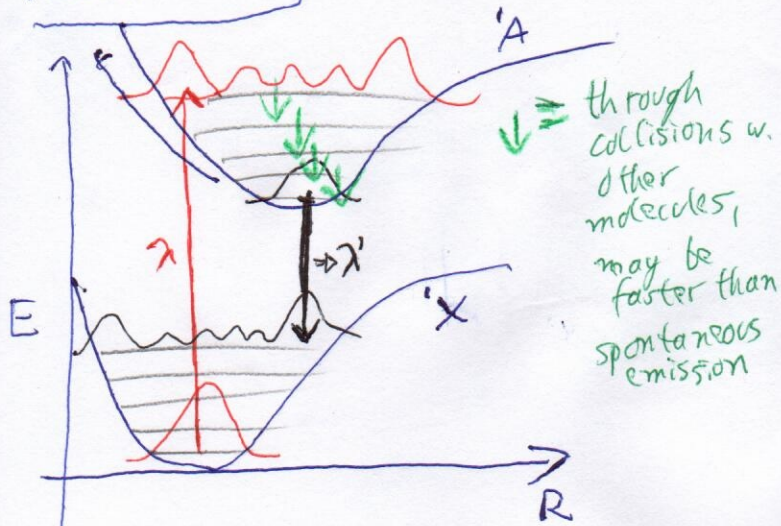 'A
↓ ≡ through
collisions w.
other
molecules,
may be
faster than
spontaneous
emission
λ
⇒ λ'
E
'X
R